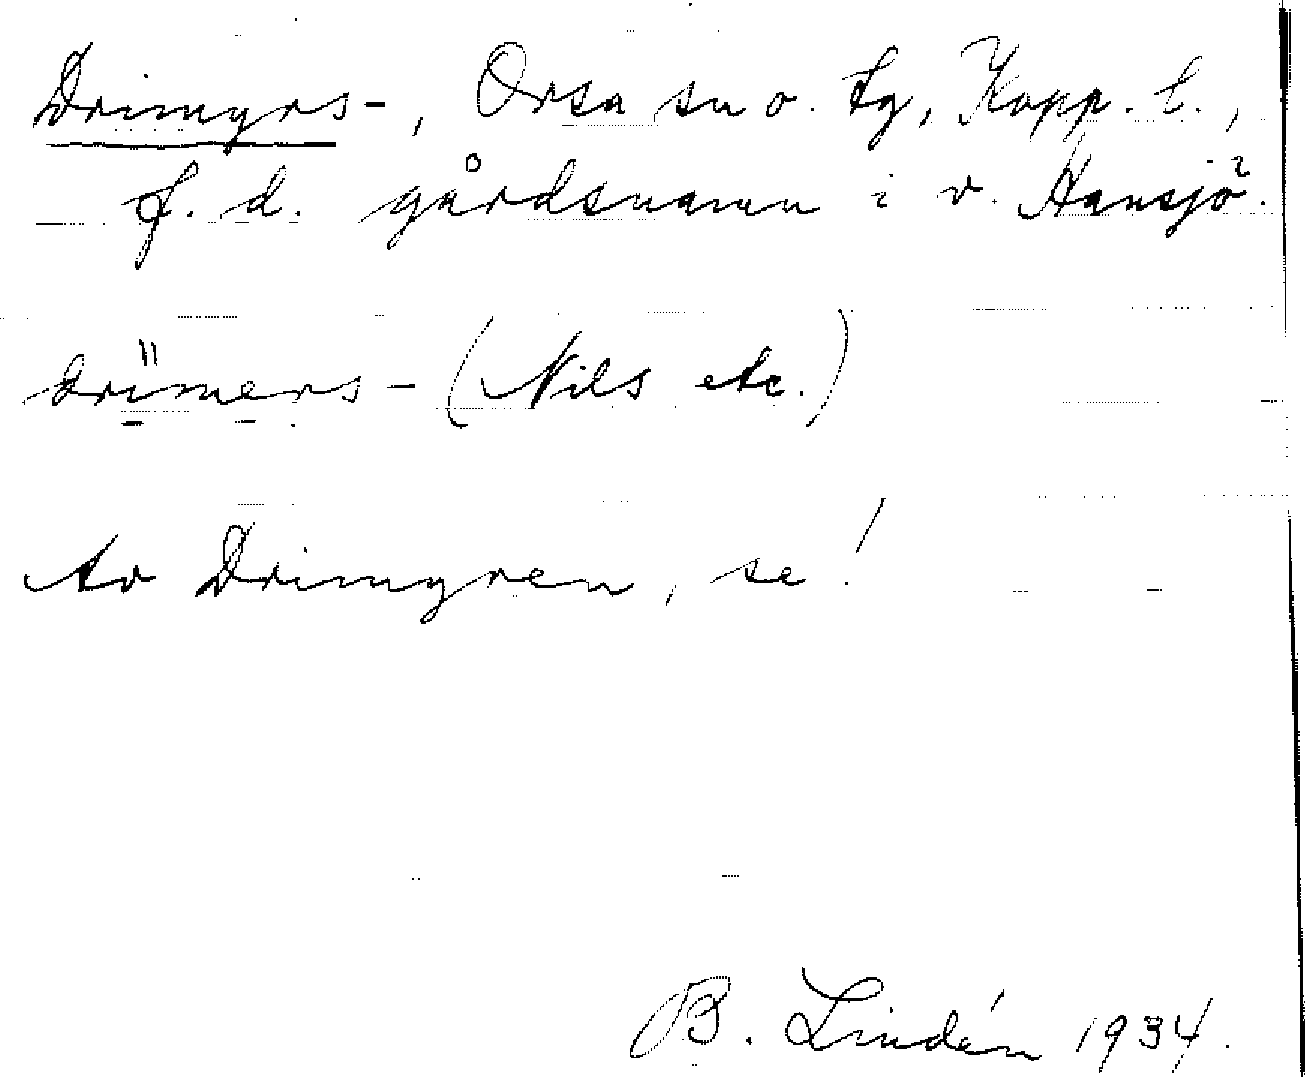 Drimyrs-, Orsa sn o. tg, Kopp. l.,
f. d. gårdsnamn i v. Hansjö.
drímers- (Nils etc.)
Av Drimyren, se!
B. Lindén 1934.